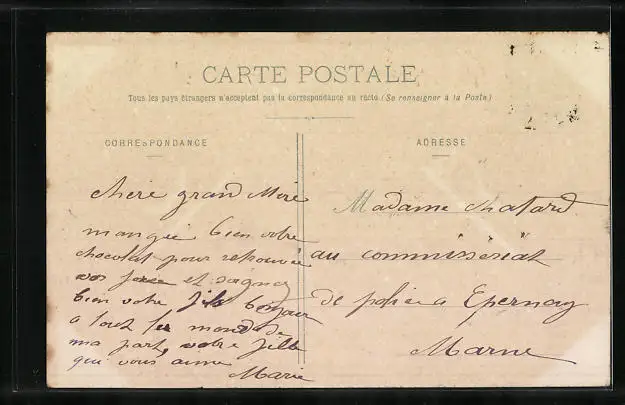 CARTE POSTALE
Tous les pays étrangers n'acceptent pas la correspondance au recto (Se renseigner à la Poste)
CORRESPONDANCE
chère grand Mère
mangué bien votre
chocolat pour retrouvée
vos et soignez
bien votre fils bonjour
a tout le monde de
ma part, votre fille
qui vous aime
Marie
ADRESSE
Madame Chatard
au commisseriat
de police a Epernay
Marne